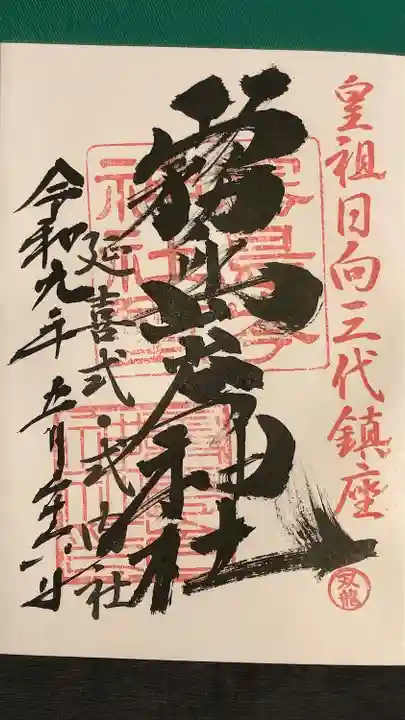 皇祖日向三代鎮座
霧島岑神社
延喜式・式内社
令和九年五月二十六日